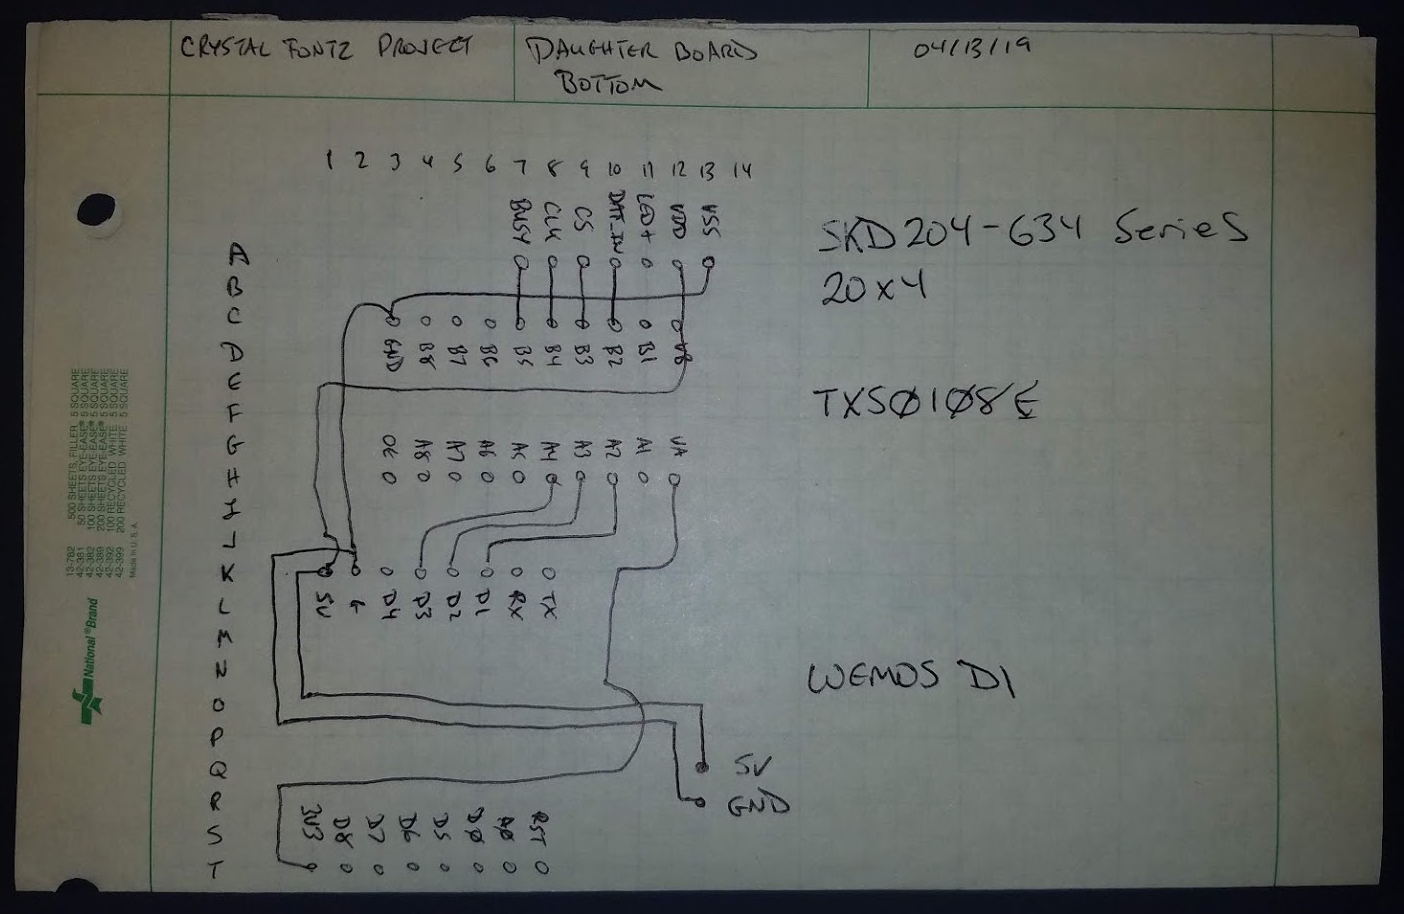 CRYSTAL FONTZ PROJECT
DAUGHTER BOARD
BOTTOM
04/13/19
1 2 3 4 5 6 7 8 9 10 11 12 13 14
BUSY CLK CS DAT_IN LED+ VDD VSS
SKD204-634 Series
20x4
A
B
C
D
E
F
G
H
L
K
L
M
N
O
P
Q
R
S
T
GND B8 B7 B6 B5 B4 B3 B2 B1 VB
TXS0108E
OE A8 A7 A6 A5 A4 A3 A2 A1 VA
5V G D4 D3 D2 D1 RX TX
WEMOS D1
5V
GND
3V3 D8 D7 D6 D5 D0 A0 RST
13-782 500 SHEETS, FILLER 5 SQUARE
42-381 50 SHEETS EYE-EASE® 5 SQUARE
42-382 100 SHEETS EYE-EASE® 5 SQUARE
42-389 200 SHEETS EYE-EASE® 5 SQUARE
42-392 100 RECYCLED WHITE 5 SQUARE
42-399 200 RECYCLED WHITE 5 SQUARE
Made in U.S.A.
National® Brand